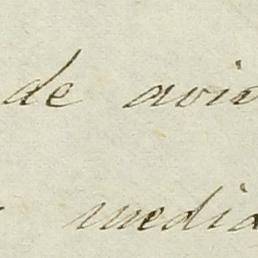 de avis
media